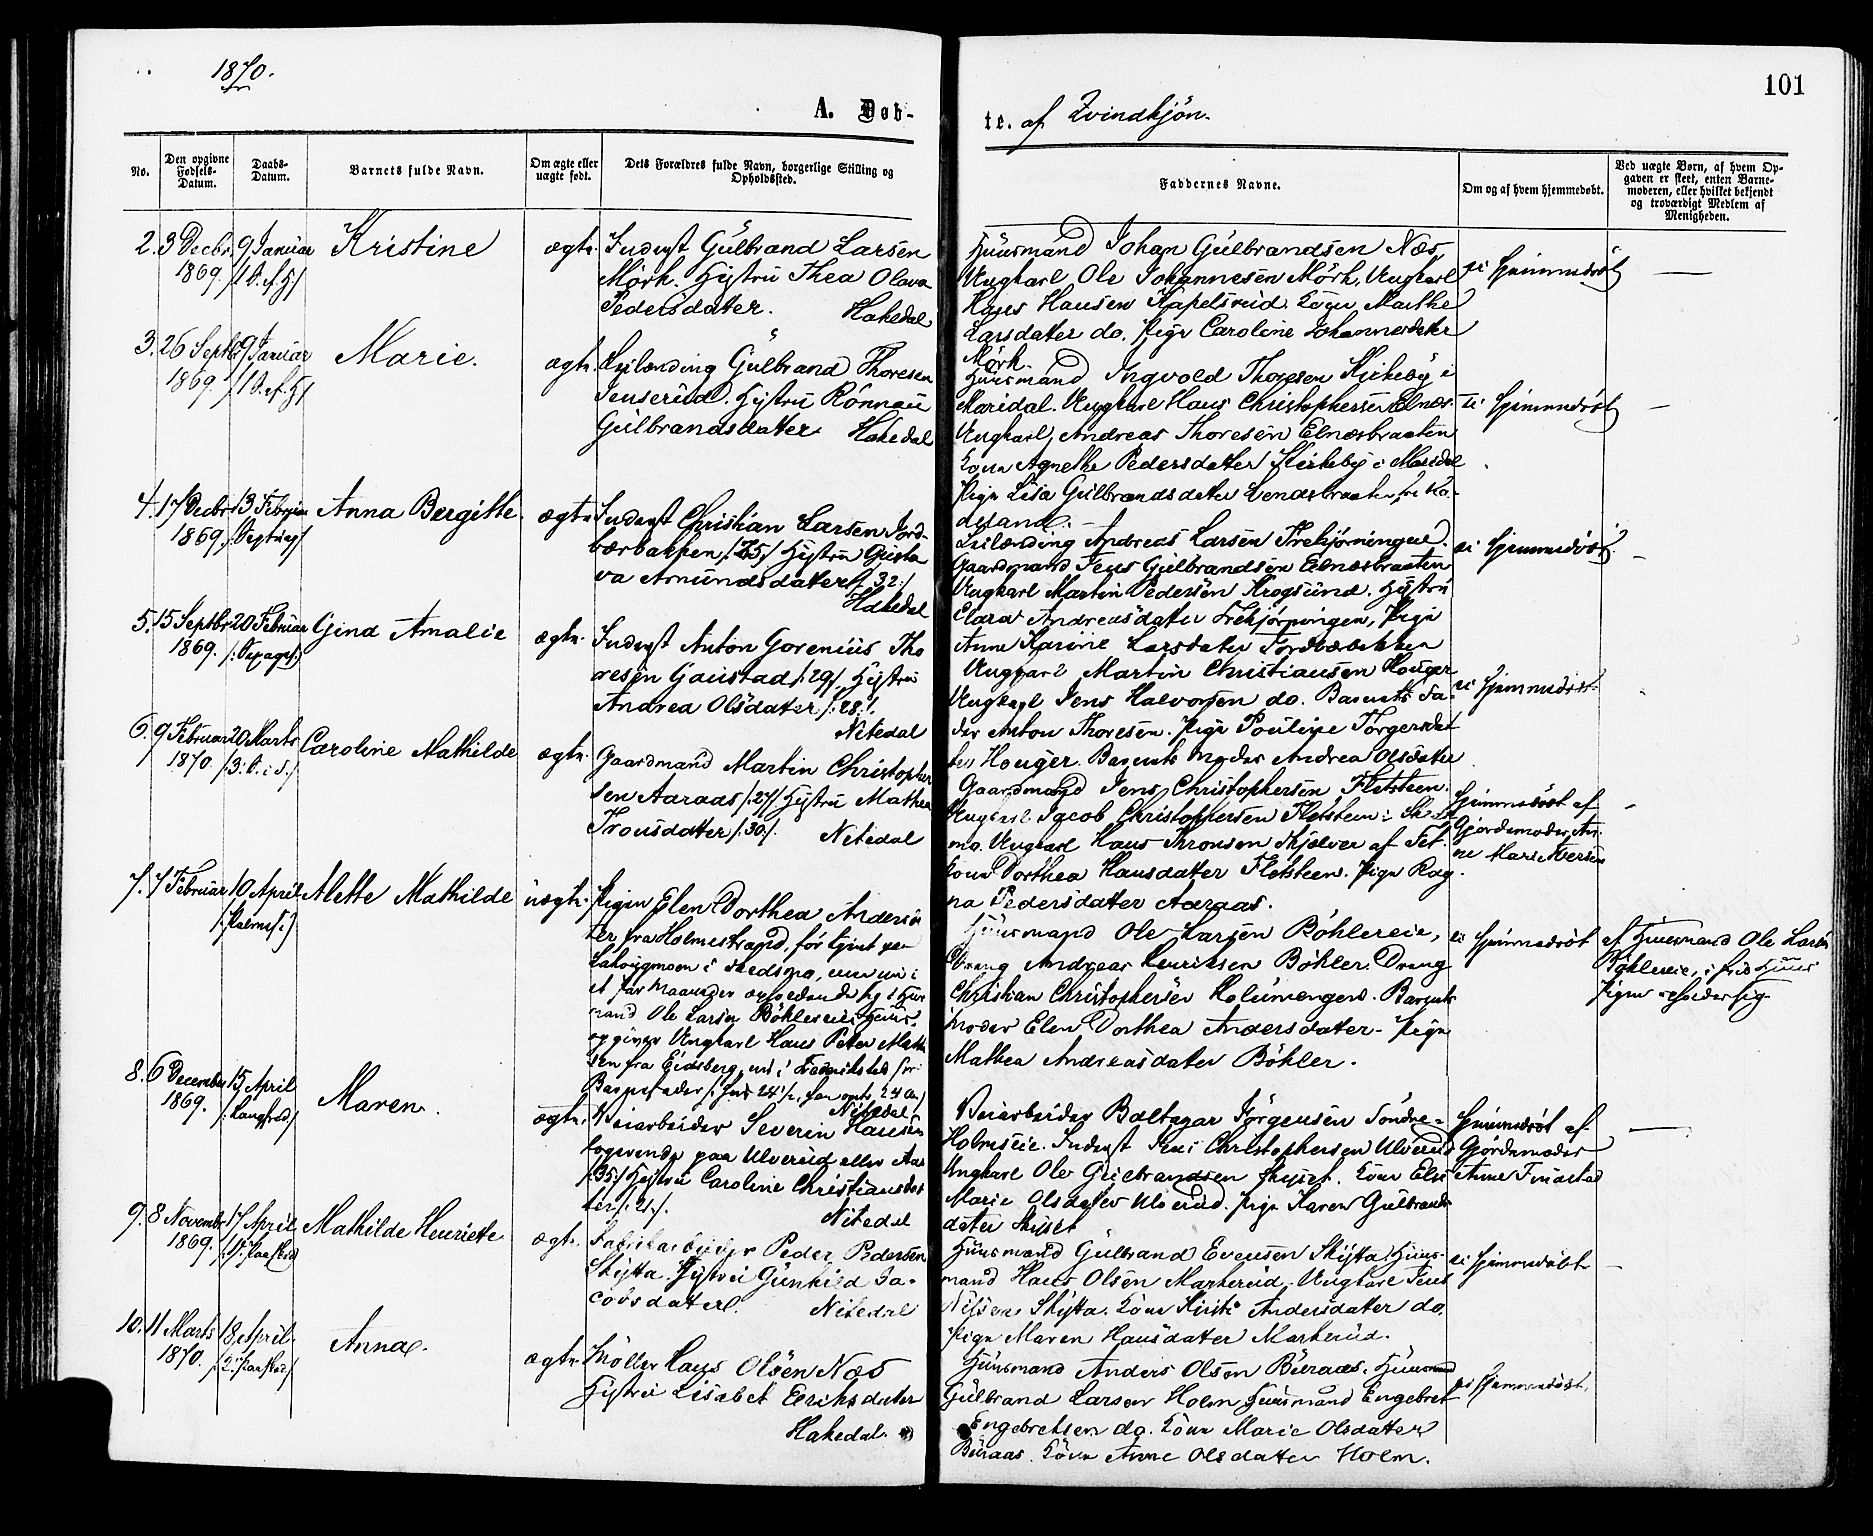 1870.
101
A. Døb-
te. af Kvindkjön.
No.
Den opgivne Fødsels-Datum.
Daabs-Datum.
Barnets fulde Navn.
Om ægte eller uægte født.
Dets Forældres fulde Navn, borgerlige Stilling og Opholdssted.
Faddernes Navne.
Om og af hvem hjemmedøbt.
Ved uægte Børn, af hvem Opgaven er skeet, enten Barnemoderen, eller hvilket bekjendt og troværdigt Medlem af Menigheden.
2. 3 Decbr. 1869.
9 Januar
Kristine
ægte.
Inderst Gulbrand Larsen
Mörk. Hystru Thea Olava
Pedersdater. Hakedal
Huusmand Johan Gulbrandsen Næs,
Ungkarl Ole Johannesen Mörk, Ungkarl
Hans Hansen Kapelsrud. Kone Marthe
Larsdater do. Pige Caroline Johannesdatr
Mörk.
ei hjemmedöbt
3. 26 Septbr 1869.
9 Januar
Marie.
ægte.
Leilænding Gulbrand Thoresen
Jenserud. Hystru Rönnau
Gulbrandsdatter Hakedal
Huusmand Ingvold Thoresen Kirkeby i
Maridal. Ungkarl Hans Christophersen Elnæs.
Ungkarl Andreas Thoresen Elnæsbraaten
Kone Agnethe Pedersdater Kirkeby i Maridal
Pige Lisa Gulbrandsdater
ei hjemmedöbt
4. 17 Decbr 1869.
13 Februar
Anna Bergitte
ægte
Inderst Christian Larsen Jord-
bærbakken /:35:/ Hystru Gusta-
va Amundsdater /: 32:/
Hakedal
Leilænding Andreas Larsen Trehjørningen.
Gaardmand Jens Gulbrandsen Elnæsbraaten
Ungkarl Martin Pedersen Krogsund. Hystru
Clara Andreasdater Trehjørningen, Pige
Anne Karine Larsdater Jordbærbakken
ei hjemmedöbt
5. 15 Septbr 1869.
20 Februar
Gina Amalie
ægte.
Inderst Anton Gorenius Tho
resen Gaustad /:29:/ Hystru
Andrea Olsdater /:28:/
Nitedal
Ungkarl Martin Christiansen Houger
Ungkarl Jens Halvorsen do. Barnets Fa-
der Anton Thoresen. Pige Pouline Torgersdat
ter Houger. Barnets Moder Andrea Olsdater
ei hjemmedöbt
6. 9 Februar 1870.
20 Marts
Caroline Mathilde
ægte.
Gaardmand Martin Christopher
sen Aaraas /:27/ Hystru Mathea
Tronsdatter /:30:/. Nitedal
Gaardmand Jens Christophersen Fletsteen.
Ungkarl Jacob Christophersen Fletsteen i Skeds
mo. Ungkarl Hans Thronsen Skjælver af Fet.
Kone Dorthea Hansdater Fletsteen. Pige Rag
na Pedersdater Aaraas.
hjemmedöbt af
Gjordemoder An-
ne Marie Iversen
7. 7 Februar
10 April
/:Palmes:/
Alette Mathilde
uægte.
Pigen Elen Dorthea Andersda
ter fra Holmestrand, för tjent paa
Lahaugmoen i Skedsmo, men nu i
et Par Maaneder opholdende sig i Huus
mand Ole Larsen Böhlereies Huus,
opgiver Ungkarl Hans Peter
sen fra Eidsberg, nu i Fredrikstad for
Barnefader
Nitedal
Huusmand Ole Larsen Böhlereie,
Dreng Andreas Henriksen Böhler. Dreng
Christian Christophersen Holumengen. Barnets
Moder Elen Dorthea Andersdater. Pige
Mathea Andreasdater Böhler.
ei hjemmedöbt
af Huusmand Ole Larsen
Böhlereie, i hvis Huus
Pigen opholder sig.
8. 6 December 1869.
15 April
/:Langfred:/
Maren.
ægte.
Veiarbeider Severin Hansen
logerende paa Ulverud eller Aas
/:35:/ Hystru Caroline Christiansdat
ter Nitedal
Veiarbeider Baltazar Jörgensen Söndre-
Holmseie. Inderst Jens Christophersen Ulverud
Ungkarl Ole Gulbrandsen Skyset. Kone Elen
Marie Olsdater Ulverud. Pige Karen Gulbrands
dater Skyset
hjemmedöbt af
Gjordemoder
Anne Finstad
9. 8 Novembr 1869.
17 April
Mathilde Henriette
ægte.
Fabrikarbeider Peder Pedersen
Skytta. Hystru Gunhild Ja-
cobsdater. Nitedal
Huusmand Gulbrand Evensen Skytta. Huus-
mand Hans Olsen Markerud, Ungkarl Jens
Nilsen Skytta. Kone Kirsti Andersdater do.
Pige Maren Hansdater Markerud.
ei hjemmedöbt
10. 11 Marts 1870.
18 April
Anna.
ægte
Möller Hans Olsen Næs
Hystru Lisabet Eriksdater
Hakedal.
Huusmand Anders Olsen Buraas. Huusmand
Gulbrand Larsen Holm. Huusmand Engebret
Engebretsen do. Kone Marie Olsdatter
Buraas. Kone Anne Olsdatter Holm.
ei hjemmedöbt.